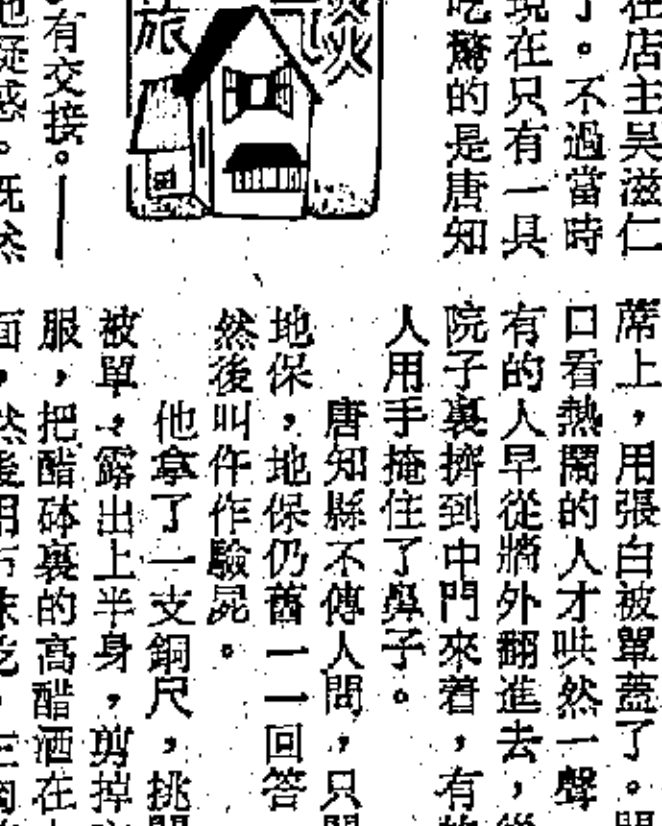 在店主吳滋仁
了。不過當時
現在只有一具
吃驚的是唐知
旅
有交接。——
地疑惑。既然
蓆上，用張白被單蓋了。
口看熱鬧的人才哄然一聲
有的人早從牆外翻進去，從
院子裏擠到中門來着，有的
人用手掩住了鼻子。
唐知縣不傳人問，只
地保，地保仍舊一一回答
然後叫仵作驗屍。
他拿了一支銅尺，挑開
被單，露出上半身，剪掉
服，把醋砵裏的高醋洒在
面，然後用